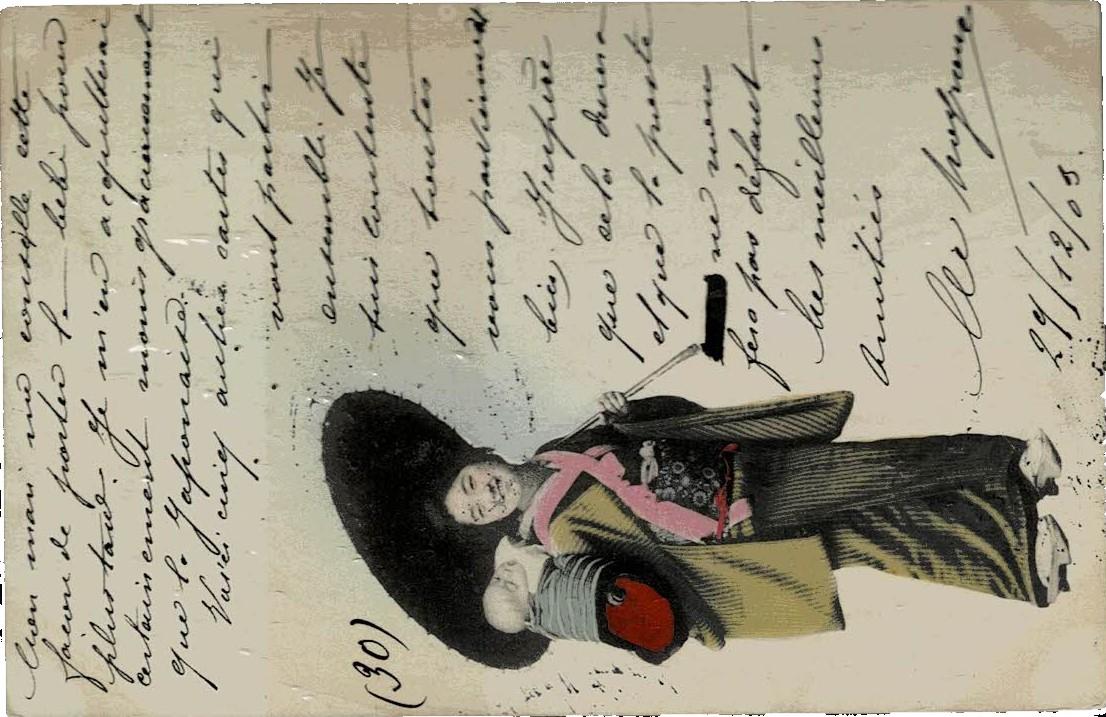 Mon mari me conseille cette
façon de porter le bébé pour
plus tard. Je m'en acquitterai
certainement moins gracieusement
que la Japonaise.
Voici cinq autres cartes qui
vont partir
ensemble. Je
suis contente
que toutes
vous parviennent
bien, j'espère
que cela durera
et que la poste
ne nous
fera pas défaut.
Mes meilleures
Amitiés
(30)
29/12/05.